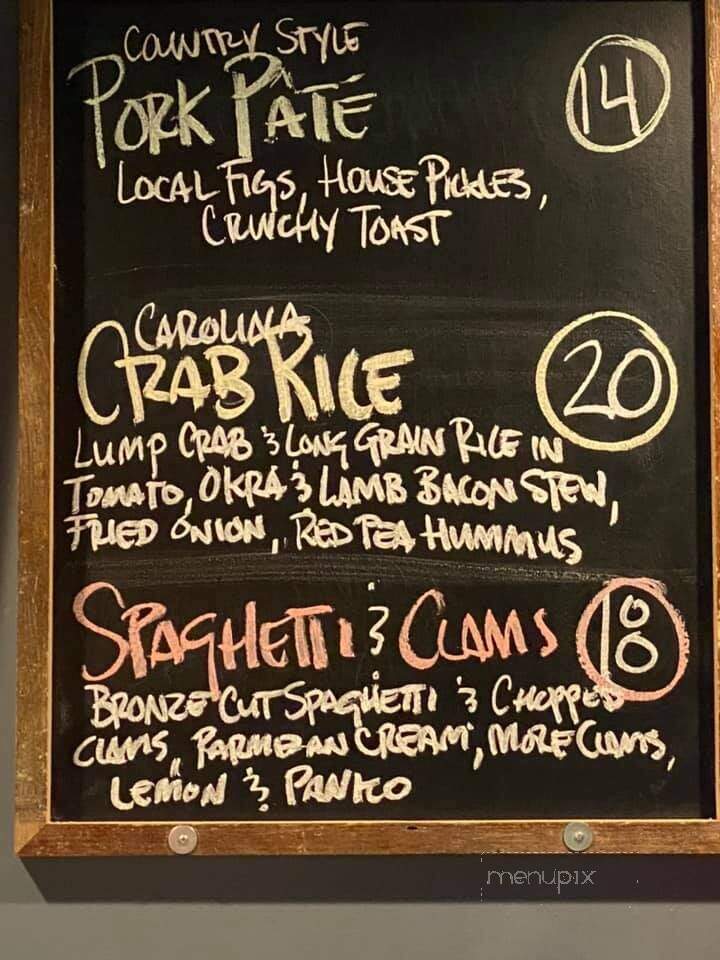 COUNTRY STYLE
PORK PÂTÉ
14
LOCAL FIGS, HOUSE PICKLES,
CRUNCHY TOAST
CAROLINA
CRAB RICE
20
LUMP CRAB & LONG GRAIN RICE IN
TOMATO, OKRA & LAMB BACON STEW,
FRIED ONION, RED PEA HUMMUS
SPAGHETTI & CLAMS
18
BRONZE CUT SPAGHETTI & CHOPPED
CLAMS, PARMESAN CREAM, MORE CLAMS,
LEMON & PANKO
menupix